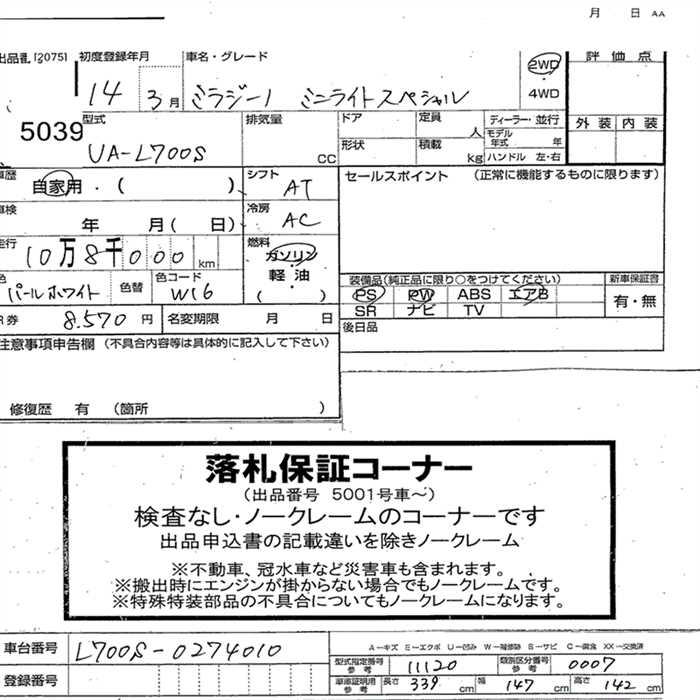 月 日 AA
出品番 120751 初度登録年月 車名・グレード 2WD 評価点
14 3月 ミラジーノ ミニライトスペシャル 4WD
外装 内装
5039 型式 排気量 ドア 定員 人 ディーラー・並行
UA-L700S cc 形状 積載 kg モデル年式 年
ハンドル 左・右
車歴 自家用・( ) シフト AT セールスポイント (正常に機能するものに限ります)
車検 年 月( 日) 冷房 AC
走行 10万8千000 km 燃料 ガソリン
軽・油
( )
色 パールホワイト 色替 色コード W16 装備品(純正品に限り○をつけてください) 新車保証書
PS PW ABS エアB 有・無
SR ナビ TV
R券 8.570 円 名変期限 月 日 後日品
注意事項申告欄 (不具合内容等は具体的に記入して下さい)
修復歴 有 (箇所 )
落札保証コーナー
(出品番号 5001号車~)
検査なし・ノークレームのコーナーです
出品申込書の記載違いを除きノークレーム
※不動車、冠水車など災害車も含まれます。
※搬出時にエンジンが掛からない場合でもノークレームです。
※特殊特装部品の不具合についてもノークレームになります。
車台番号 L700S-0274010 A-キズ E-エクボ U-凹み W-補修跡 S-サビ C-腐食 XX-交換済
型式指定番号参考 11120 類別区分番号参考 0007
登録番号 車庫証明用参考 長さ 339 cm 幅 147 cm 高さ 142 cm